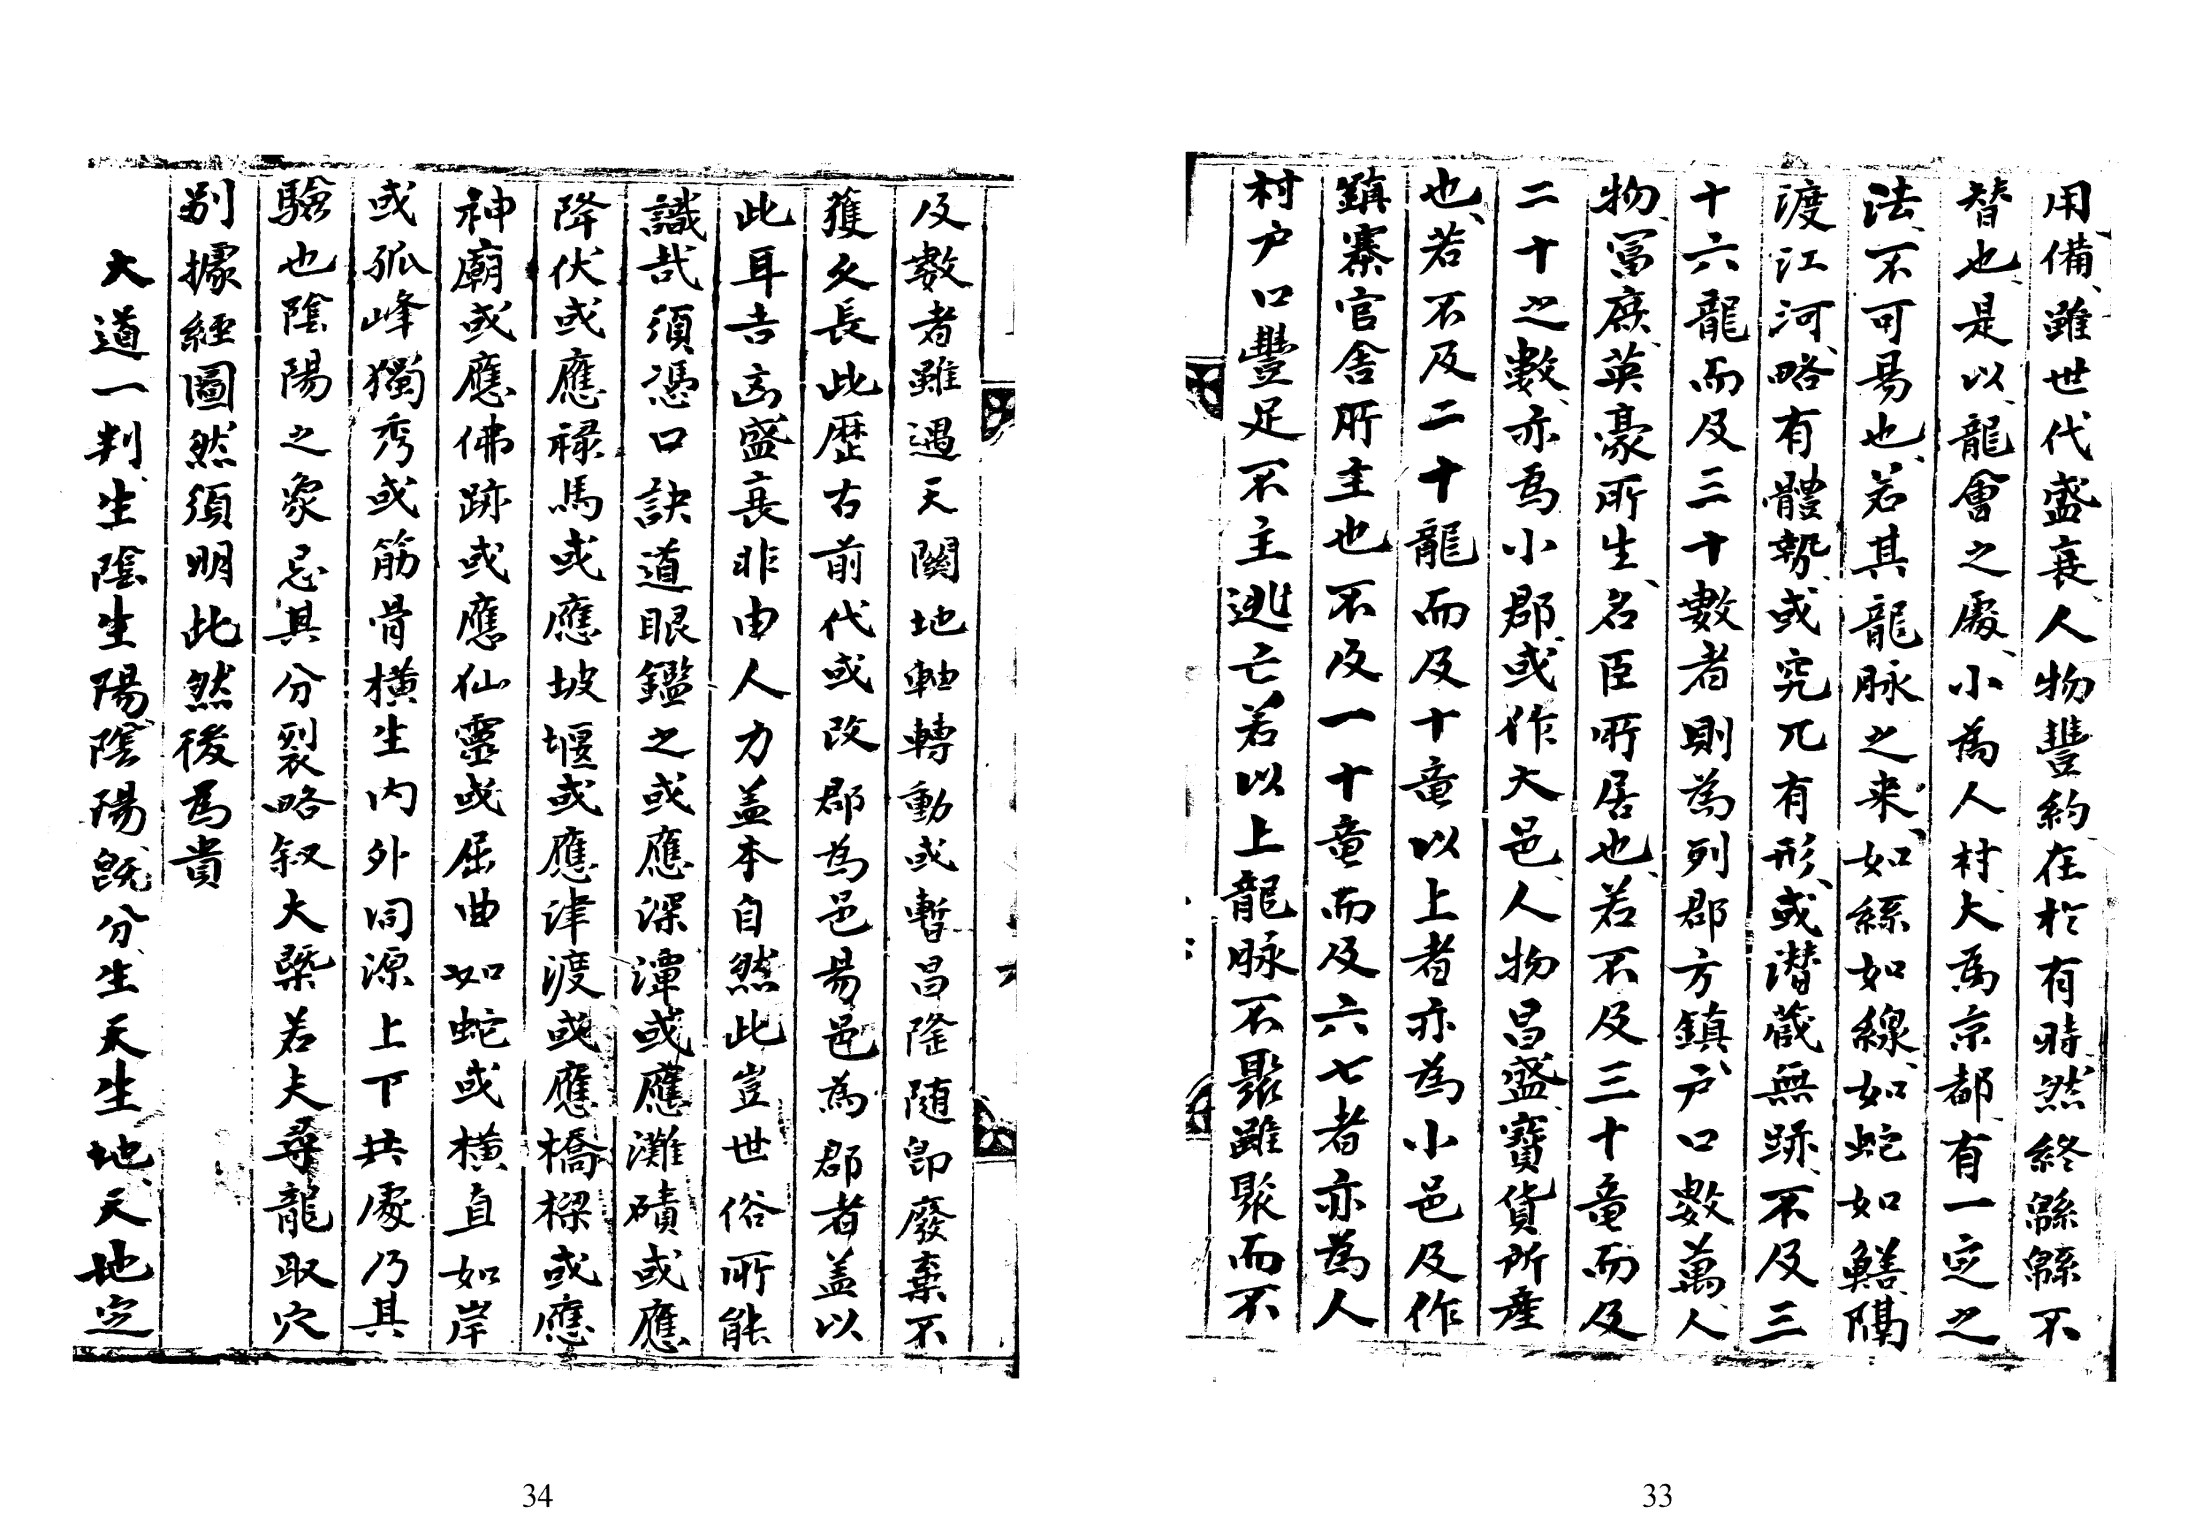 用備雖世代盛衰人物豐約在於有時然終緜緜不
替也是以龍會之處小為人村大為京都有一定之
法不可易也若其龍脉之来如絲如線如蛇如鱔隔
渡江河略有體勢或究兀有形或潜蔵無跡不及三
十六龍而及三十數者則為列郡方鎮户口數萬人
物冨庶英豪所生名臣所居也若不及三十竜而及
二十之數亦為小郡或作大邑人物昌盛寳貨所產
也若不及二十龍而及十竜以上者亦為小邑及作
鎮寨官舎所主也不及一十竜而及六七者亦為人
村户口豐足不主逃亡若以上龍脉不聚雖聚而不
及數者雖遇天關地軸轉動或暫昌隆随即廢棄不
獲久長此歴古前代或改郡為邑易邑為郡者盖以
此耳吉凶盛衰非由人力盖本自然此豈世俗所能
識哉須憑口訣道眼鑑之或應深潭或應灘磧或應
降伏或應禄馬或應坡堰或應津渡或應橋樑或應
神廟或應佛跡或應仙靈或屈曲如蛇或橫直如岸
或孤峰獨秀或筋骨橫生内外同源上下共處乃其
驗也陰陽之象忌其分裂略叙大槩若夫尋龍取穴
别據經圖然須明此然後為貴
大道一判生陰生陽陰陽既分生天生地天地定
33
34